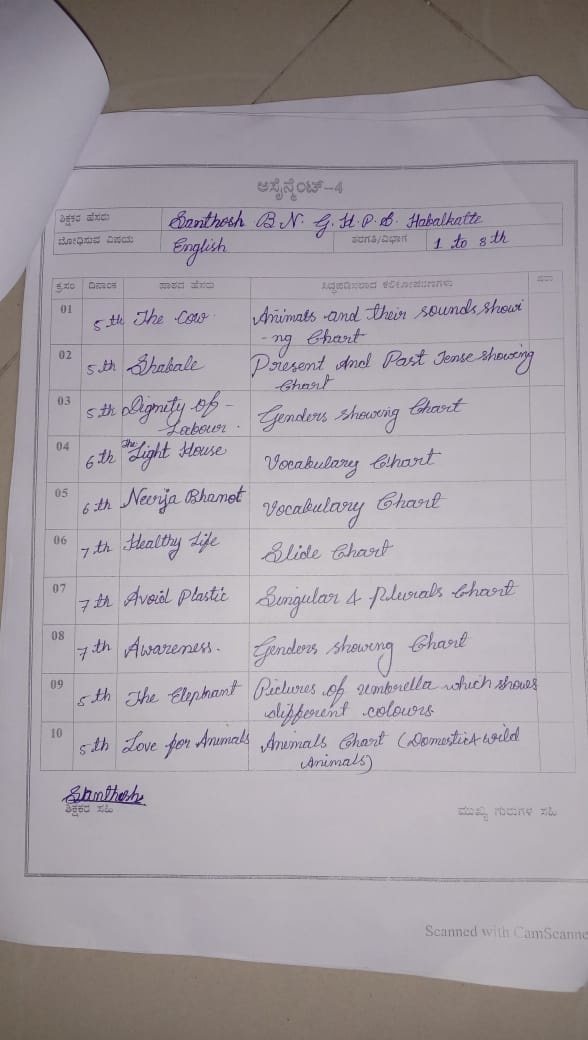 ಅಸೈನ್ಮೆಂಟ್-4
ಶಿಕ್ಷಕರ ಹೆಸರು Santhosh B N. G. H. P. S. Habalkatte
ಬೋಧಿಸುವ ವಿಷಯ English ತರಗತಿ/ವಿಭಾಗ 1 to 8th
ಕ್ರ.ಸಂ ದಿನಾಂಕ ಪಾಠದ ಹೆಸರು ಸಿದ್ಧಪಡಿಸಲಾದ ಕಲಿಕೋಪಕರಣಗಳು
01 5th The Cow. Animals and their sounds showi
-ng Chart
02 5th Shabale Present And Past Tense showing
Chart
03 5th Dignity of - Genders showing Chart
Labour.
04 6th The Light House Vocabulary Chart
05 6th Neerja Bhanot Vocabulary Chart
06 7th Healthy Life Slide Chart
07 7th Avoid Plastic Singular & Plurals Chart
08 7th Awareness. Genders showing Chart
09 5th The Elephant Pictures of umbrella which shows
different colours
10 5th Love for Animals Animals Chart (Domestic & wild
Animals)
Santhosh
ಶಿಕ್ಷಕರ ಸಹಿ ಮುಖ್ಯ ಗುರುಗಳ ಸಹಿ
Scanned with CamScanne